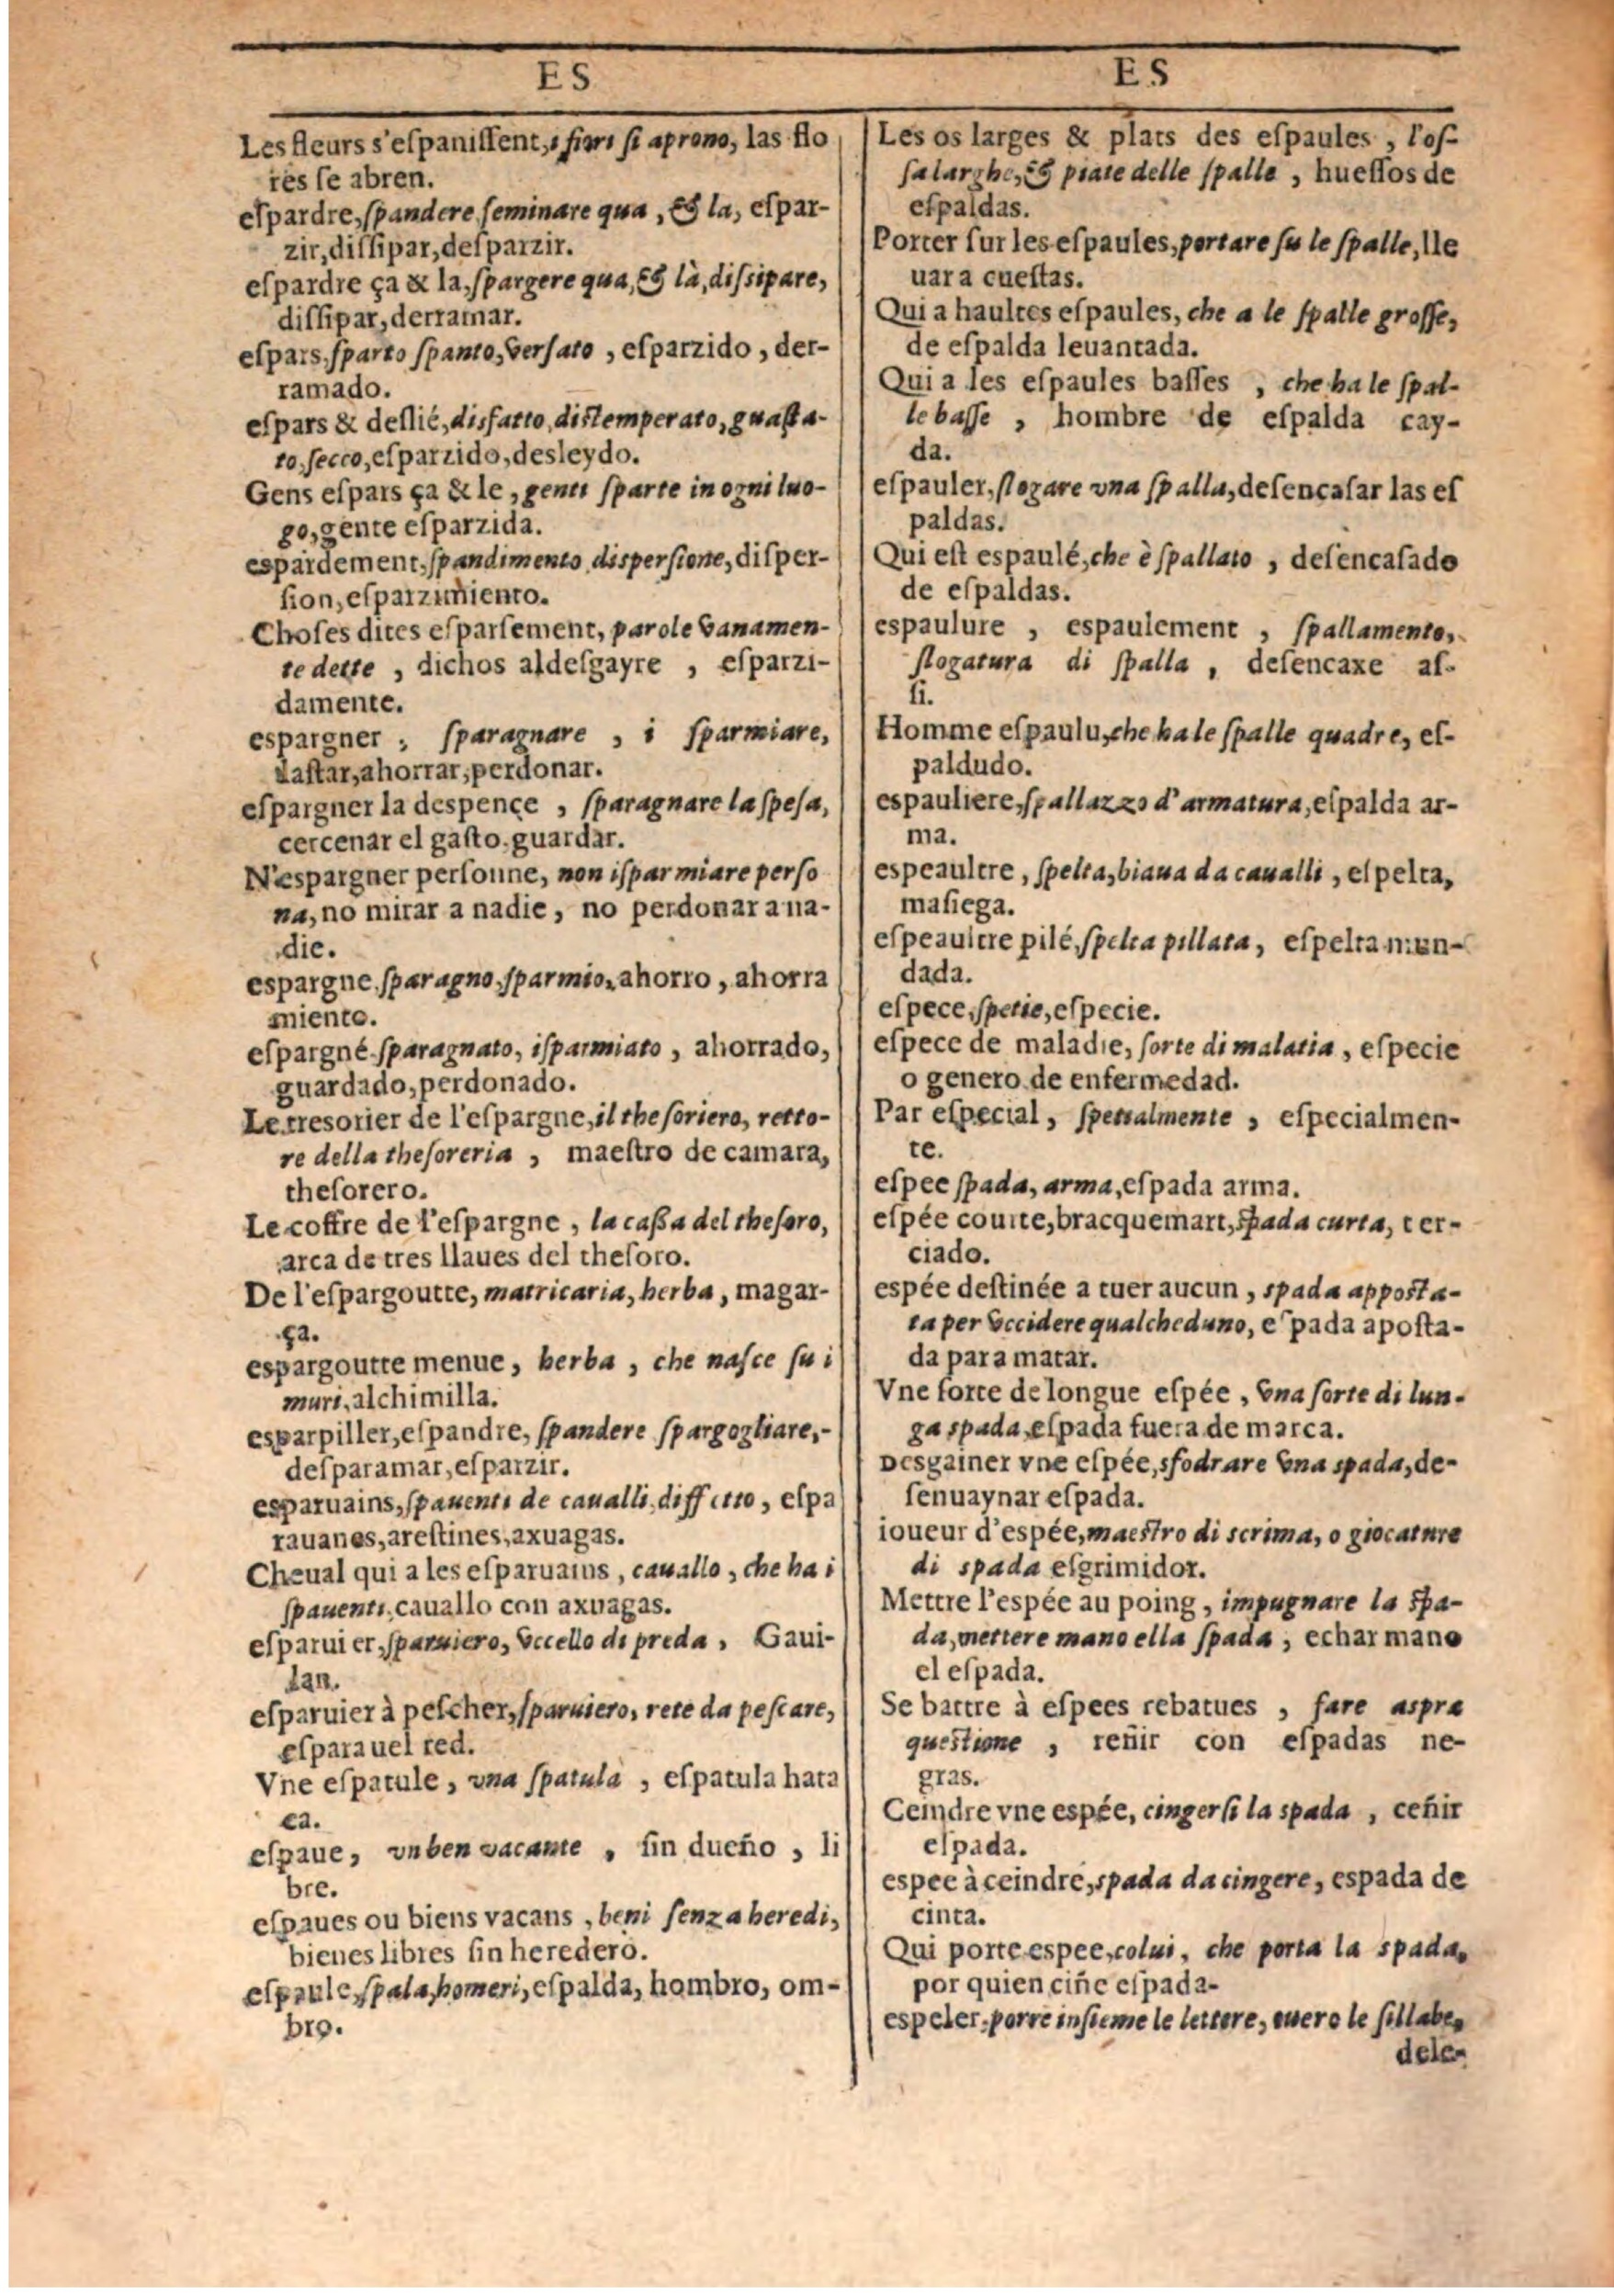 ES
Les fleurs s'eſpaniſſent, i fiori ſi aprono, las flo
res ſe abren.
eſpardre, ſpandere ſeminare qua, & la, eſpar-
zir, diſſipar, deſparzir.
eſpardre ça & la, ſpargere qua, & là, diſsipare,
diſſipar, derramar.
eſpars, ſparto ſpanto, verſato, eſparzido, der-
ramado.
eſpars & deſlié, disfatto, distemperato, guaſta-
to, ſecco, eſparzido, desleydo.
Gens eſpars ça & le, genti ſparte in ogni luo-
go, gente eſparzida.
espardement, ſpandimento dispersione, diſper-
ſion, eſparzimiento.
Choſes dites eſparſement, parole vanamen-
te dette, dichos aldeſgayre, eſparzi-
damente.
espargner, ſparagnare, i ſparmiare,
taſtar, ahorrar, perdonar.
eſpargner la despençe, ſparagnare la ſpeſa,
cercenar el gaſto, guardar.
N'espargner perſonne, non iſparmiare perſo
na, no mirar a nadie, no perdonar a na-
die.
espargne, ſparagno, ſparmio, ahorro, ahorra
miento.
eſpargné, ſparagnato, iſparmiato, ahorrado,
guardado, perdonado.
Le tresorier de l'eſpargne, il theſoriero, retto-
re della theſoreria, maeſtro de camara,
theſorero.
Le coffre de l'eſpargne, la caßa del theſoro,
arca de tres llaues del theſoro.
De l'eſpargoutte, matricaria, herba, magar-
ça.
espargoutte menue, herba, che naſce ſu i
muri, alchimilla.
esparpiller, eſpandre, ſpandere ſpargogliare,-
deſparamar, eſparzir.
esparuains, ſpauenti de caualli, diffetto, eſpa
rauanes, areſtines, axuagas.
Cheual qui a les eſparuains, cauallo, che ha i
ſpauenti, cauallo con axuagas.
eſparuier, ſparuiero, vccello di preda, Gaui-
lan.
eſparuier à peſcher, ſparuiero, rete da peſcare,
eſparauel red.
Vne eſpatule, vna ſpatula, eſpatula hata
ca.
eſpaue, vn ben vacante, ſin dueño, li
bre.
eſpaues ou biens vacans, beni ſenza heredi,
bienes libres ſin heredero.
eſpaule, ſpala, homeri, eſpalda, hombro, om-
bro.
ES
Les os larges & plats des eſpaules, l'oſ-
ſa larghe, & piate delle ſpalle, hueſſos de
eſpaldas.
Porter ſur les eſpaules, portare ſu le ſpalle, lle
uar a cueſtas.
Qui a haultes eſpaules, che a le ſpalle groſſe,
de eſpalda leuantada.
Qui a les eſpaules baſſes, che ha le ſpal-
le baſſe, hombre de eſpalda cay-
da.
eſpauler, ſlogare vna ſpalla, deſençaſar las eſ
paldas.
Qui eſt espaulé, che è ſpallato, deſencaſado
de eſpaldas.
espaulure, espaulement, ſpallamento,
ſlogatura di ſpalla, deſencaxe aſ-
ſi.
Homme eſpaulu, che ha le ſpalle quadre, eſ-
paldudo.
espauliere, ſpallazzo d'armatura, eſpalda ar-
ma.
espeaultre, ſpelta, biaua da caualli, eſpelta,
maſiega.
eſpeaultre pilé, ſpelta pillata, eſpelta mun-
dada.
eſpece, ſpetie, eſpecie.
eſpece de maladie, ſorte di malatia, eſpecie
o genero de enfermedad.
Par eſpecial, ſpetialmente, eſpecialmen-
te.
eſpee ſpada, arma, eſpada arma.
eſpée courte, bracquemart, ſpada curta, ter-
ciado.
espée deſtinée a tuer aucun, spada appoſta-
ta per vccidere qualcheduno, eſpada apoſta-
da para matar.
Vne ſorte de longue eſpée, vna ſorte di lun-
ga spada, eſpada fuera de marca.
Desgainer vne eſpée, sfodrare vna spada, de-
ſenuaynar eſpada.
ioueur d'espée, maeſtro di scrima, o giocature
di spada eſgrimidor.
Mettre l'espée au poing, impugnare la ſpa-
da, mettere mano ella ſpada, echar mano
el eſpada.
Se battre à eſpees rebatues, fare aspra
queſtione, reñir con eſpadas ne-
gras.
Ceindre vne espée, cingerſi la spada, ceñir
eſpada.
espee à ceindre, spada da cingere, espada de
cinta.
Qui porte espee, colui, che porta la spada,
por quien ciñe eſpada-
espeler, porre inſieme le lettere, ouero le ſillabe,
dele-